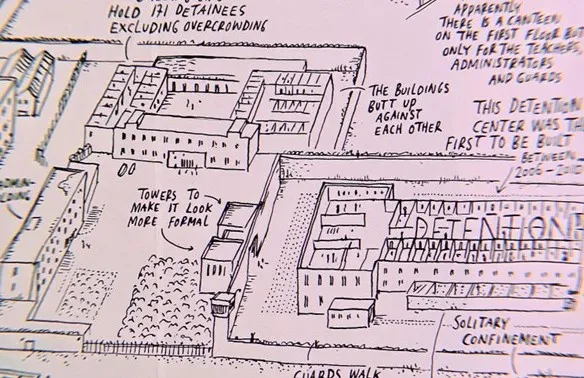 HOLD 171 DETAINEES
EXCLUDING OVERCROWDING
APPARENTLY
THERE IS A CANTEEN
ON THE FIRST FLOOR BUT
ONLY FOR THE TEACHERS,
ADMINISTRATORS
AND GUARDS
THE BUILDINGS
BUTT UP
AGAINST
EACH OTHER
THIS DETENTION
CENTER WAS TH
FIRST TO BE BUILT
BETWEEN
2006-20
TOWERS TO
MAKE IT LOOK
MORE FORMAL
ADMIN-
LDING
DETENTION
SOLITARY
CONFINEMENT
GUARDS WALK